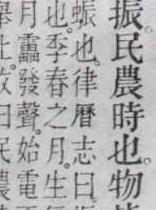 振民農時也物
蜄也律曆志曰
也季春之月生
月靁發聲始電
止故曰民農